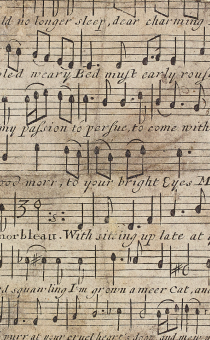 ld no longer sleep, dear charming
led weary Bed must early rous
my passion to persue, to come with
ood morr, to your bright Eyes M
norbleau. With sitting up late at
d squawling I'm grown a meer Cat, an
purr at your cruel heart's door, and mew